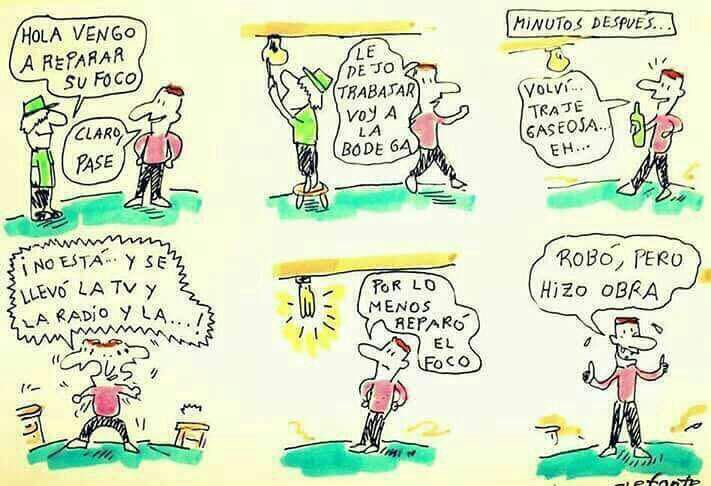 HOLA VENGO
A REPARAR
SU FOCO
CLARO,
PASE
LE
DEJO
TRABAJAR
VOY A
LA
BODEGA
MINUTOS DESPUÉS...
VOLVÍ...
TRAJE
GASEOSA...
EH...
¡NO ESTÁ... Y SE
LLEVÓ LA TV Y
LA RADIO Y LA....!
POR LO
MENOS
REPARÓ
EL
FOCO
ROBÓ, PERO
HIZO OBRA